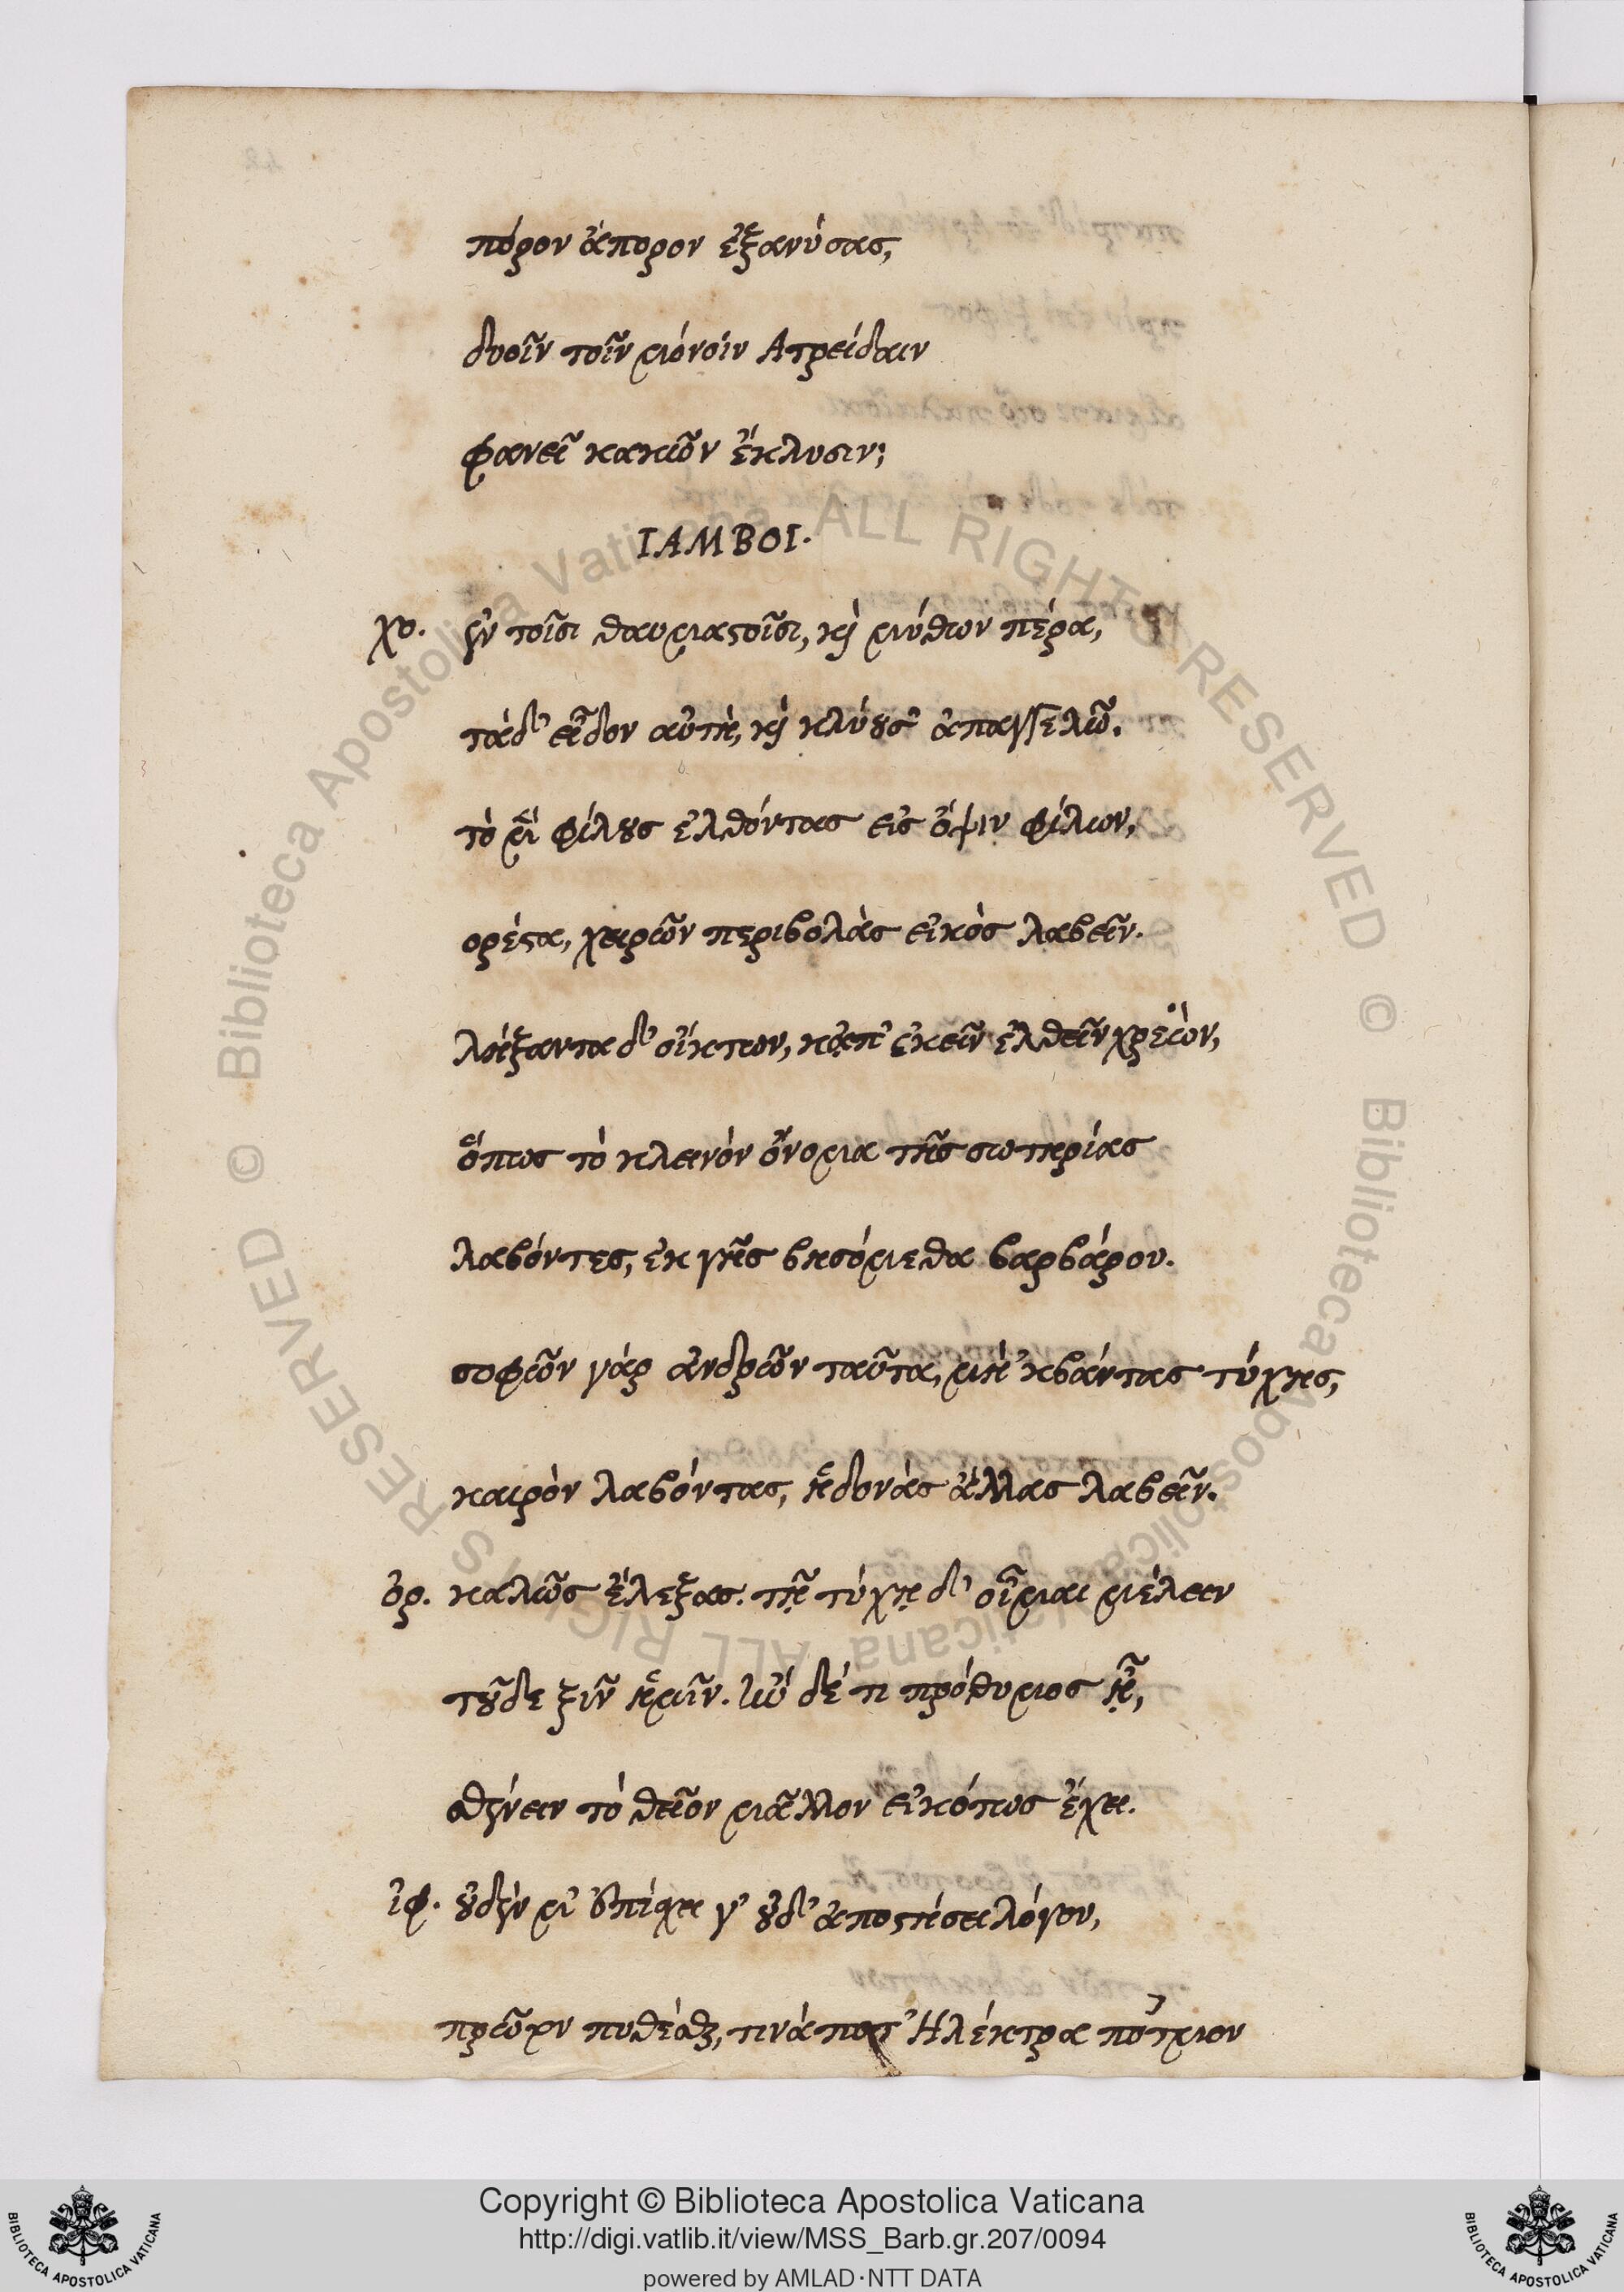 πόρον ἄπορον ἐξανύσας,
δυοῖν τοῖν μόνοιν Ατρείδαιν
φανεῖ κακῶν ἔκλυσιν;
ΙΑΜΒΟΙ.
χο. ἐν τοῖσι θαυμαστοῖσι, καὶ μύθων πέρα,
τάδ' εἶδον αὐτὴ, καὶ κλύουσ' ἀπαγγελῶ.
ὀρ. τὸ μὲν φίλους ἐλθόντας εἰς ὄψιν φίλων,
ορέστα, χειρῶν περιβολὰς εἰκὸς λαβεῖν.
λήξαντα δ' οἴκτων, κᾀπ' ἐκεῖν' ἐλθεῖν χρεὼν,
ὅπως τὸ κλεινὸν ὄνομα τῆς σωτηρίας
λαβόντες, ἐκ γῆς βησόμεθα βαρβάρου.
σοφῶν γὰρ ἀνδρῶν ταῦτα, μὴ 'κβάντας τύχης,
καιρὸν λαβόντας, ἡδονὰς ἄλλας λαβεῖν.
ὀρ. καλῶς ἔλεξας. τῇ τύχῃ δ' οἶμαι μέλειν
τοῦδε ξὺν ἡμῖν. ἢν δέ τι πρόθυμος ᾖ,
σθένειν τὸ θεῖον μᾶλλον εἰκότως ἔχει.
ἰφ. οὐδέν μ' ἐπίσχει γ' οὐδ' ἀποστήσει λόγου,
πρῶτον πυθέσθαι, τινά ποτ' Ηλέκτρα πότμον
Copyright © Biblioteca Apostolica Vaticana
http://digi.vatlib.it/view/MSS_Barb.gr.207/0094
powered by AMLAD·NTT DATA